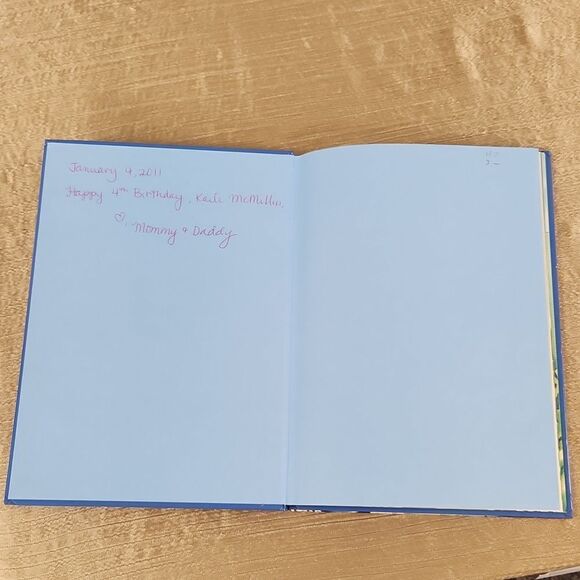 January 9, 2011
Happy 4th Birthday, Kaili McMillin,
♡, Mommy & Daddy
3.-